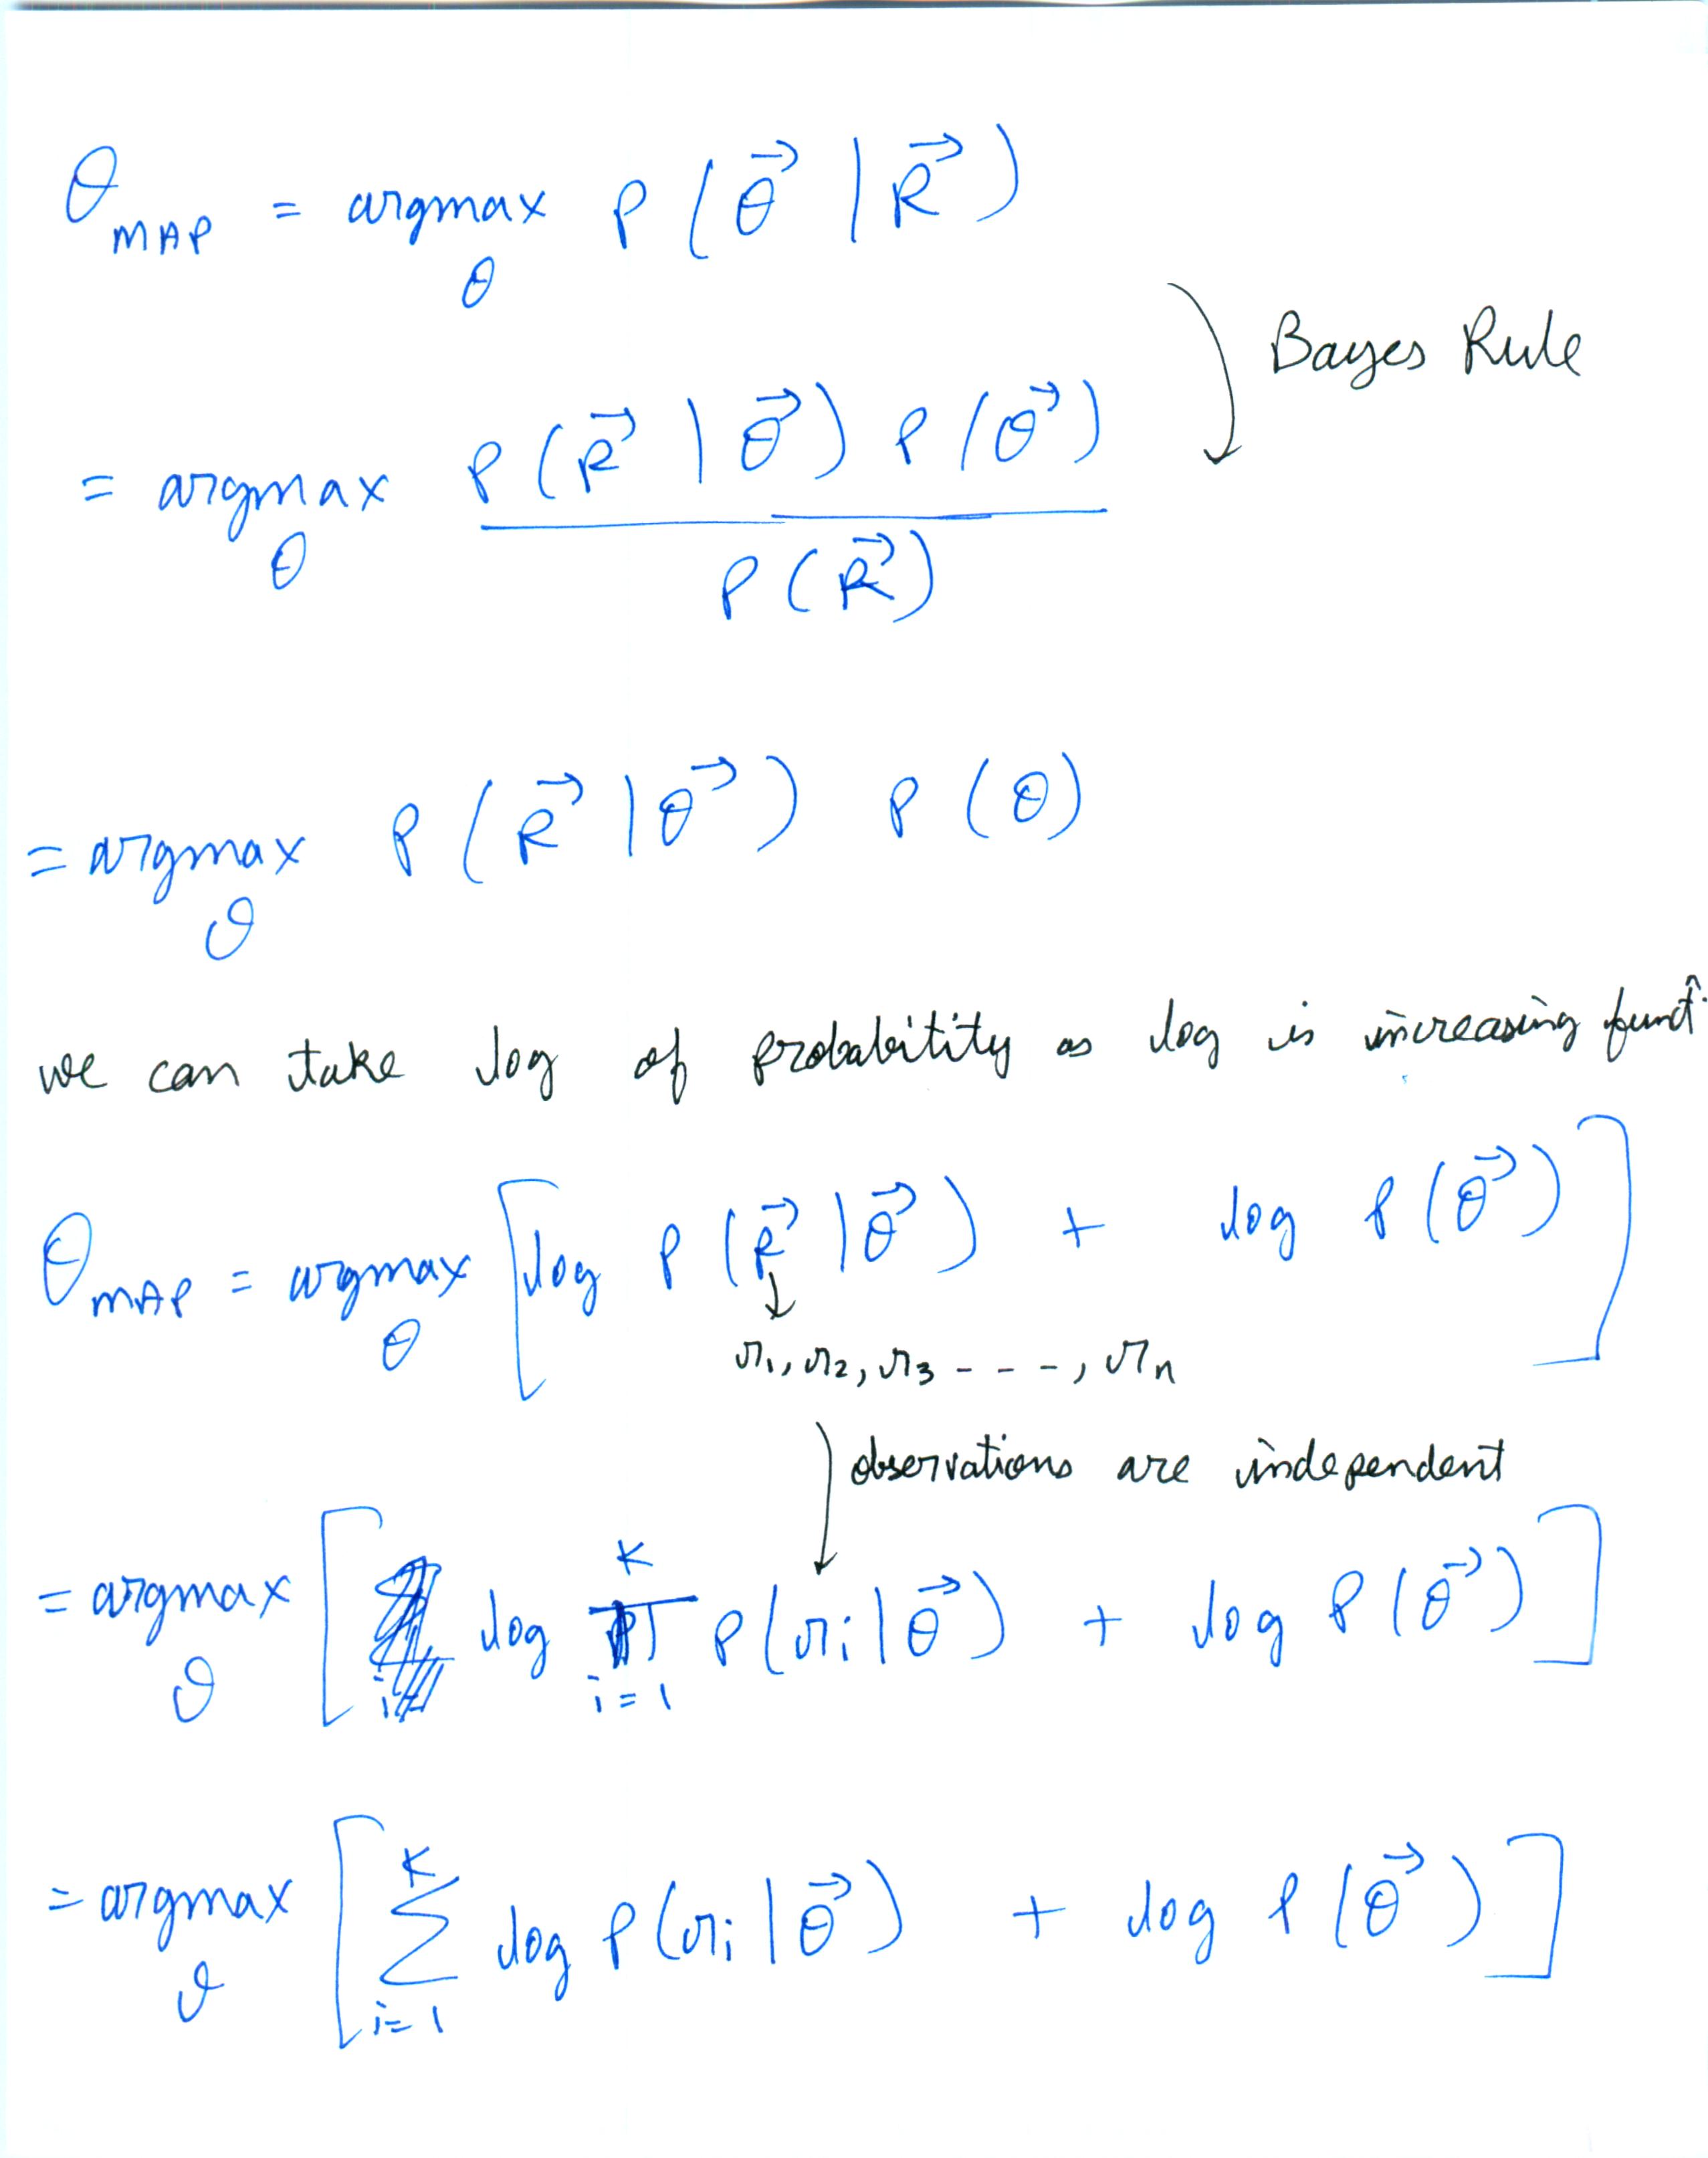 θ_MAP = argmax_θ P(θ⃗ | R⃗)
Bayes Rule
= argmax_θ P(R⃗ | θ⃗) P(θ⃗) / P(R⃗)
= argmax_θ P(R⃗ | θ⃗) P(θ)
we can take log of probabitity as log is increasing funcⁿ.
θ_MAP = argmax_θ [log P(R⃗ | θ⃗) + log P(θ⃗)]
r₁, r₂, r₃ - - - -, rₙ
observations are independent
= argmax_θ [log ∏_{i=1}^{K} P(rᵢ | θ⃗) + log P(θ⃗)]
= argmax_θ [∑_{i=1}^{K} log P(rᵢ | θ⃗) + log P(θ⃗)]